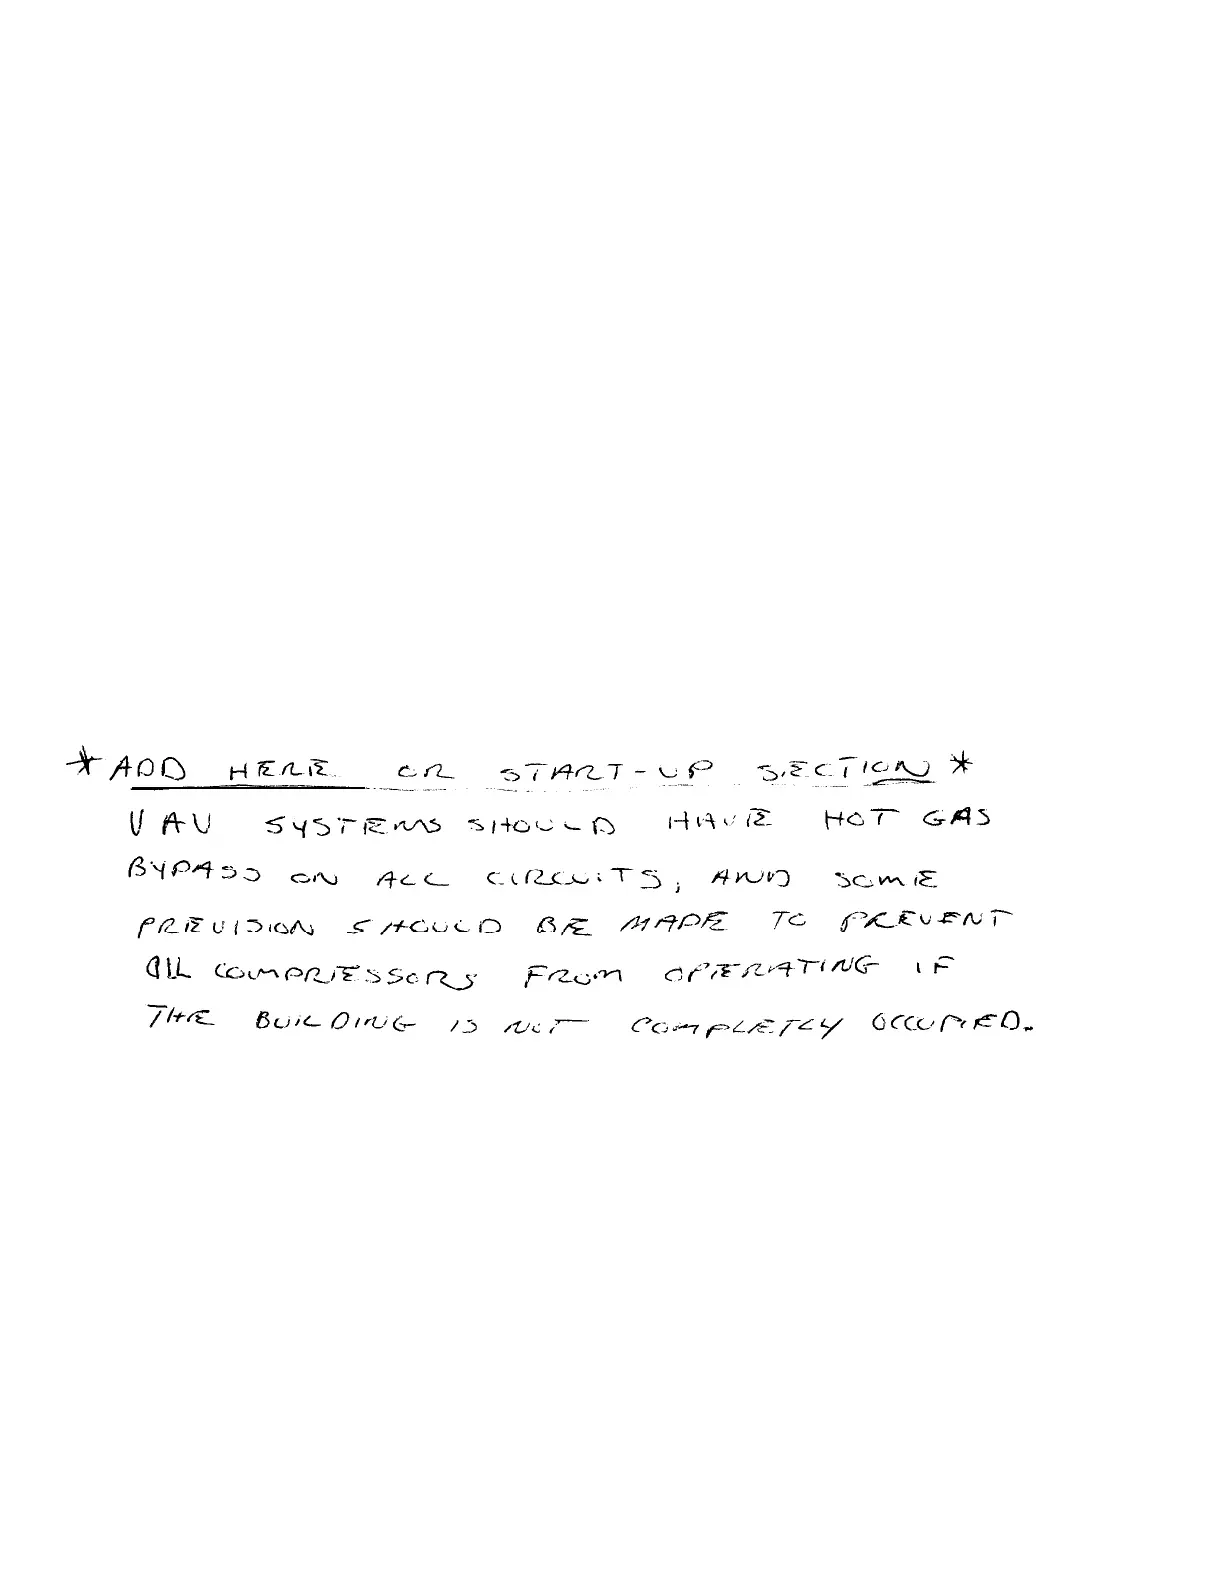 * ADD HERE OR START-UP SECTION *
VAV SYSTEMS SHOULD HAVE HOT GAS
BYPASS ON ALL CIRCUITS, AND SOME
PREVISION SHOULD BE MADE TO PREVENT
ALL COMPRESSORS FROM OPERATING IF
THE BUILDING IS NOT COMPLETELY OCCUPIED.